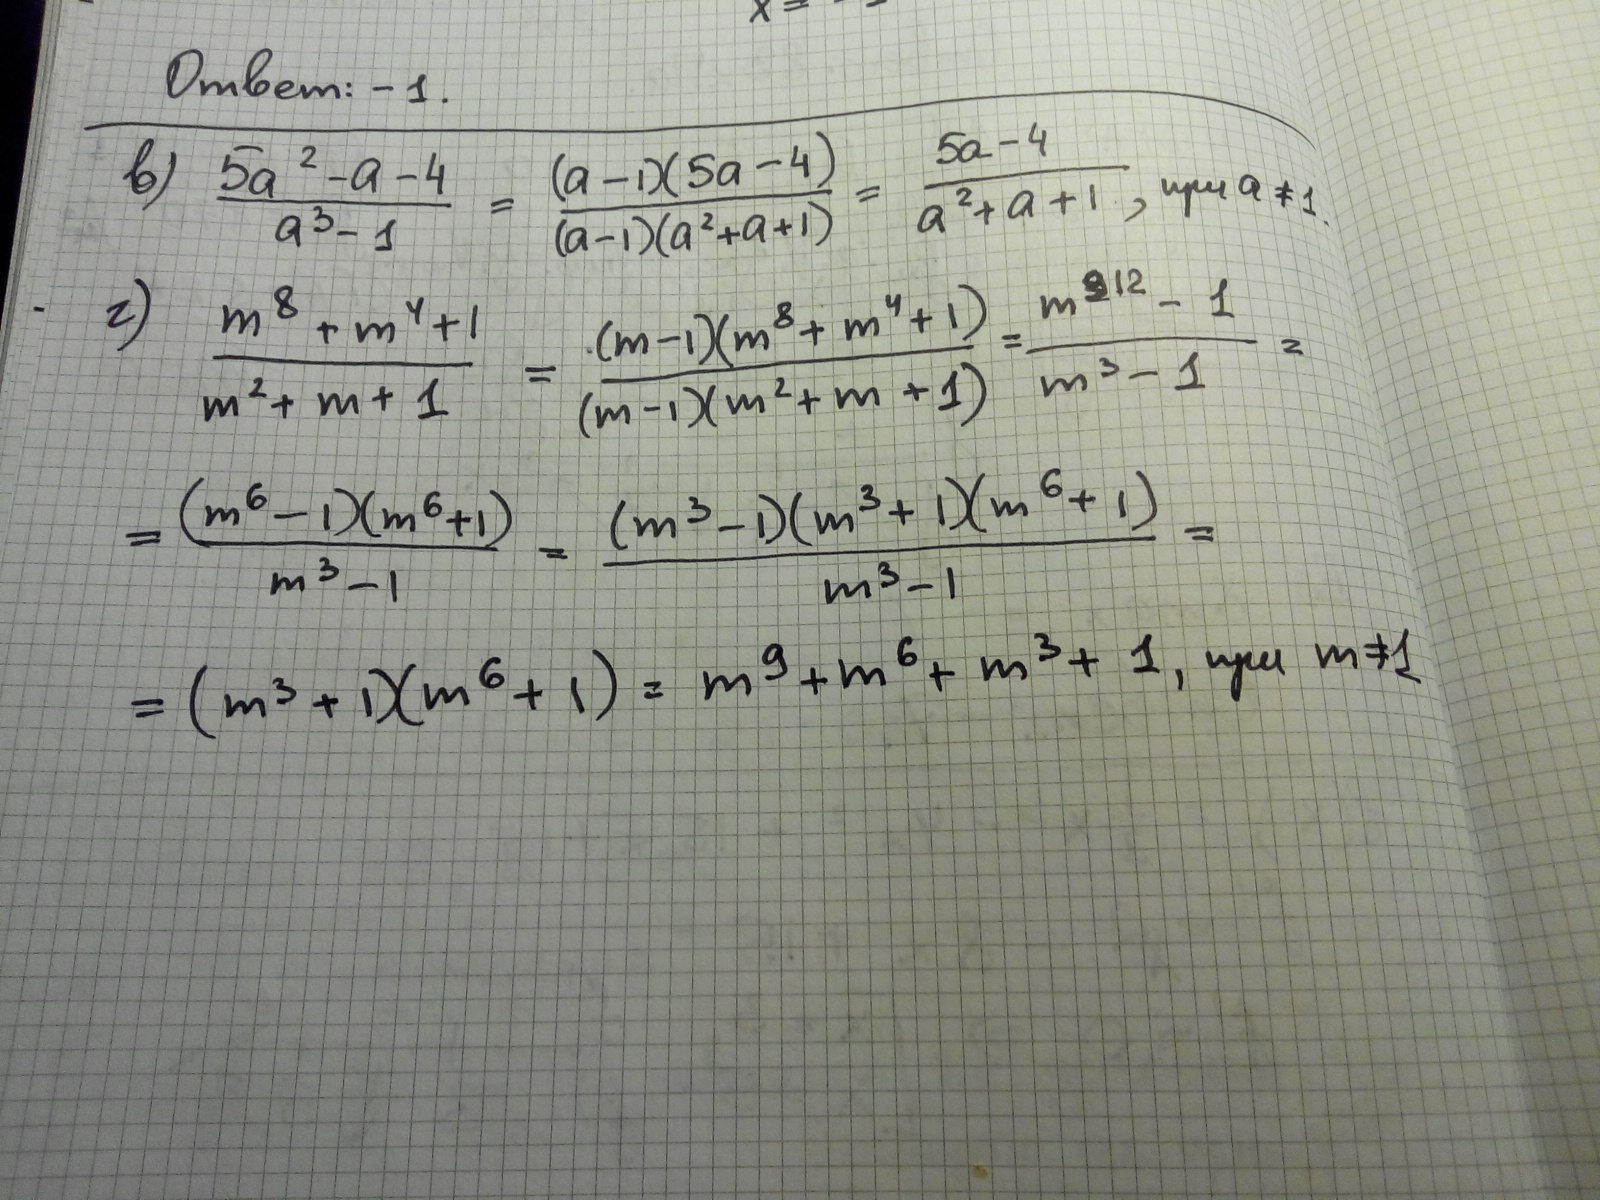 x =
Ответ: -1.
в) (5a² - a - 4)/(a³ - 1) = ((a - 1)(5a - 4))/((a - 1)(a² + a + 1)) = (5a - 4)/(a² + a + 1), при a ≠ 1.
г) (m⁸ + m⁴ + 1)/(m² + m + 1) = ((m - 1)(m⁸ + m⁴ + 1))/((m - 1)(m² + m + 1)) = (m¹² - 1)/(m³ - 1) =
= ((m⁶ - 1)(m⁶ + 1))/(m³ - 1) = ((m³ - 1)(m³ + 1)(m⁶ + 1))/(m³ - 1) =
= (m³ + 1)(m⁶ + 1) = m⁹ + m⁶ + m³ + 1, при m ≠ 1